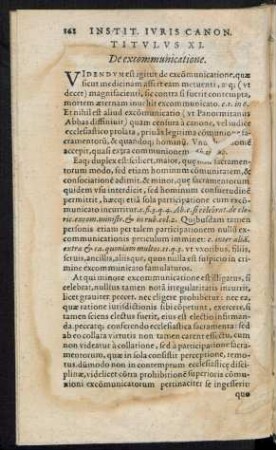 162 INSTIT. IVRIS CANON.
TITVLVS XI.
De excommunicatione.
VIDENDVM est igitur de excōmunicatione, quæ
sicut medicinam affert eam metuenti, & (vt
decet) magnifacienti, sic contra si fuerit contempta,
mortem æternam excommunicato.
Et nihil est aliud excōmunicatio (vt Panormitanus
Abbas diffiniuit) quam censura à canone, vel iudice
ecclesiastico prolata, priuās legitima cōmunione sa-
cramentorū, & quandoq; hominū.
accepit, quasi extra communionem
Eaq; duplex est: scilicet, maior, quæ sacramen-
torum modo, sed etiam hominum cōmunicatum, &
consociationē adimit, & minor, quę sacramentorum
quidem vsu interdicit, sed hominum consuetudinē
permittit, hæc etiā sola participatione cum excom-
municato incurritur.
Quibusdam tamen
personis etiam per talem participationem nulla ex-
communicationis periculum imminet:
extra vt vxoribus, filiis,
seruis, ancillis, aliisque, quos nulla est suspicio in cri-
mine excommunicato famulaturos.
At qui minore excommunicatione est alligatus, si
celebrat, nullius tamen nota irregularitatis inurit,
licet grauiter peccet. nec eligere prohibetur: nec ea,
quæ ratione iurisdictionis sibi cōpetunt, exercere, si
tamen sciens electus fuerit, eius est electio infirman-
da. peccatq; conferendo ecclesiastica sacramenta: sed
ab eo collata virtutis non tamen carent effectu, cum
non videatur à collatione, sed à participatione sacra-
mentorum, quæ in sola consistit perceptione, remo-
tus. dāmado non in contemptum ecclesiasticę disci-
plinæ, videlicet cōtra prohibitionem superioris cōm-
unioni excōmunicatorum pertinaciter se ingesserit:
quo